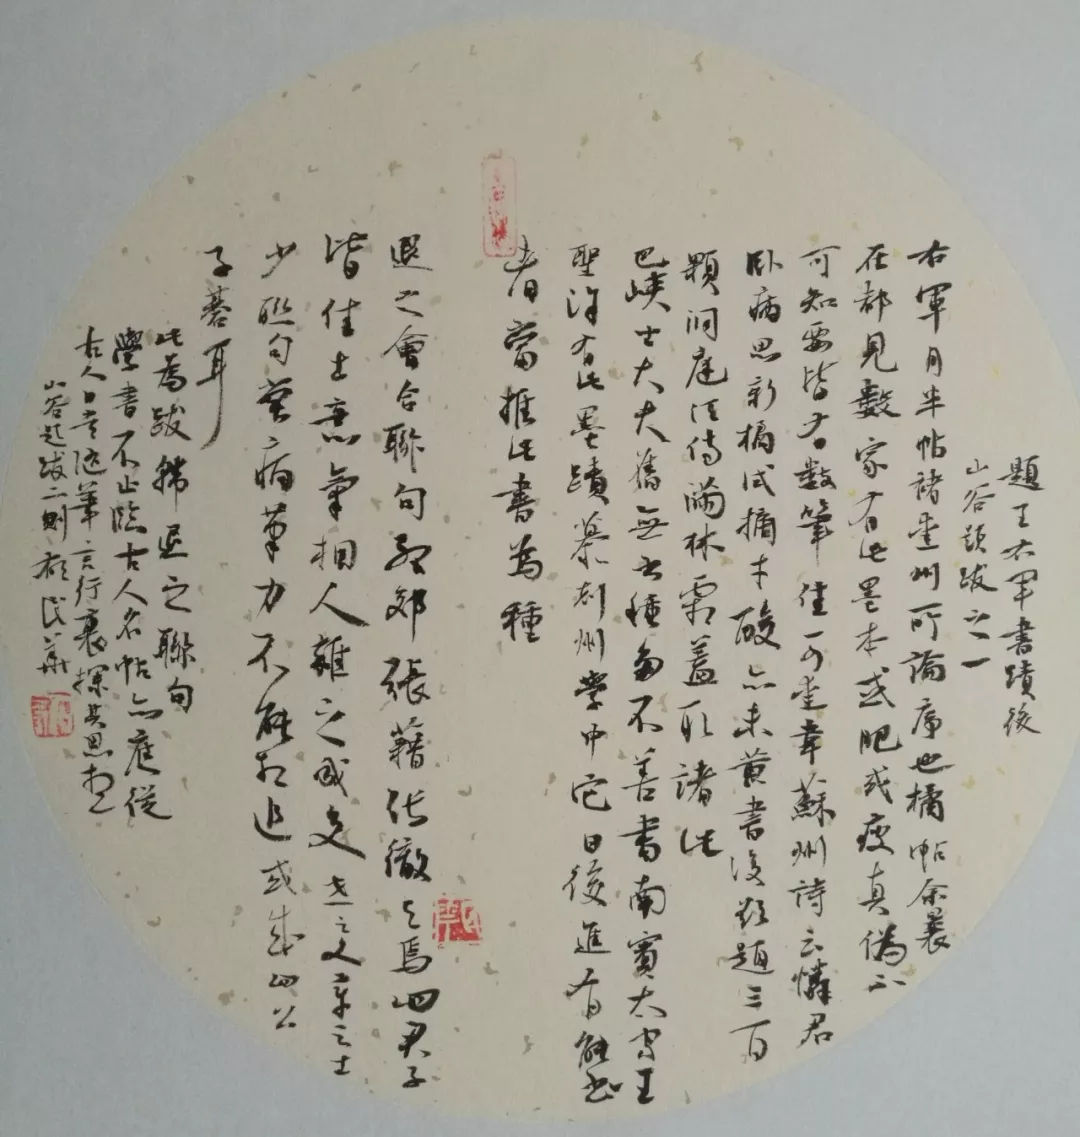 題王右軍書蹟後
山谷題跋之一
右軍月半帖諸葛州所論序也橘帖余曩
在都見數家有此墨本或肥或瘦真偽不
可知要皆有數筆佳可喜韋蘇州詩云憐君
卧病思新橘試摘才酸亦未黄書後欲題三百
顆洞庭須待滿林霜蓋取諸此
巴峽士大夫舊無書種多不善書南賓太守王
聖涂有此墨蹟摹刻州學中它日後進有能書
者當推此書為種
退之會合聯句孟郊張籍張徹与焉四君子
皆佳士意氣相入雜之成文世之文章之士
少聯句嘗病筆力不能相追或成四公
子棊耳
此為跋韓退之聯句
學書不止臨古人名帖亦應從
古人日常隨筆言行裏探其思想
山谷題跋二則